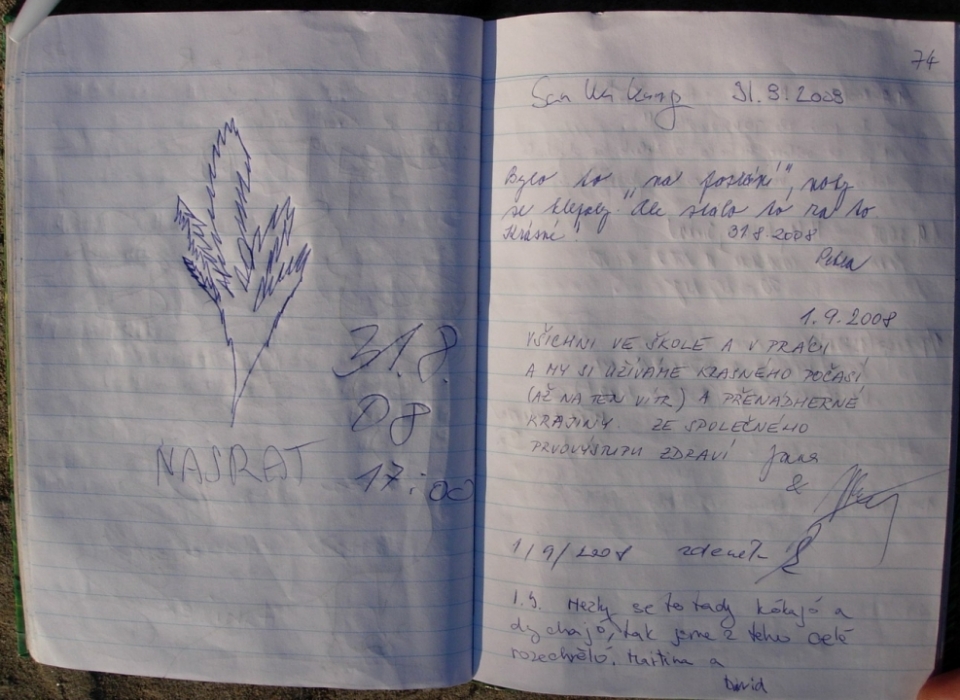 NASRAT
31.8.
08
17:00
74
31.8.2008
Bylo to „na poslání", nohy
se klepaly. Ale stálo to za to
Krásné!
31.8.2008
1.9.2008
VŠICHNI VE ŠKOLE A V PRÁCI
A MY SI UŽÍVÁME KRÁSNÉHO POČASÍ
(AŽ NA TEN VÍTR) A PŘENÁDHERNÉ
KRAJINY. ZE SPOLEČNÉHO
PRVOVÝSTUPU ZDRAVÍ Jana
&
1/9/2008 zdeněk
1.9. Hezky se to tady kókajó a
dýchajó, tak jsme z teho celé
rozechvělí. Martina a
David